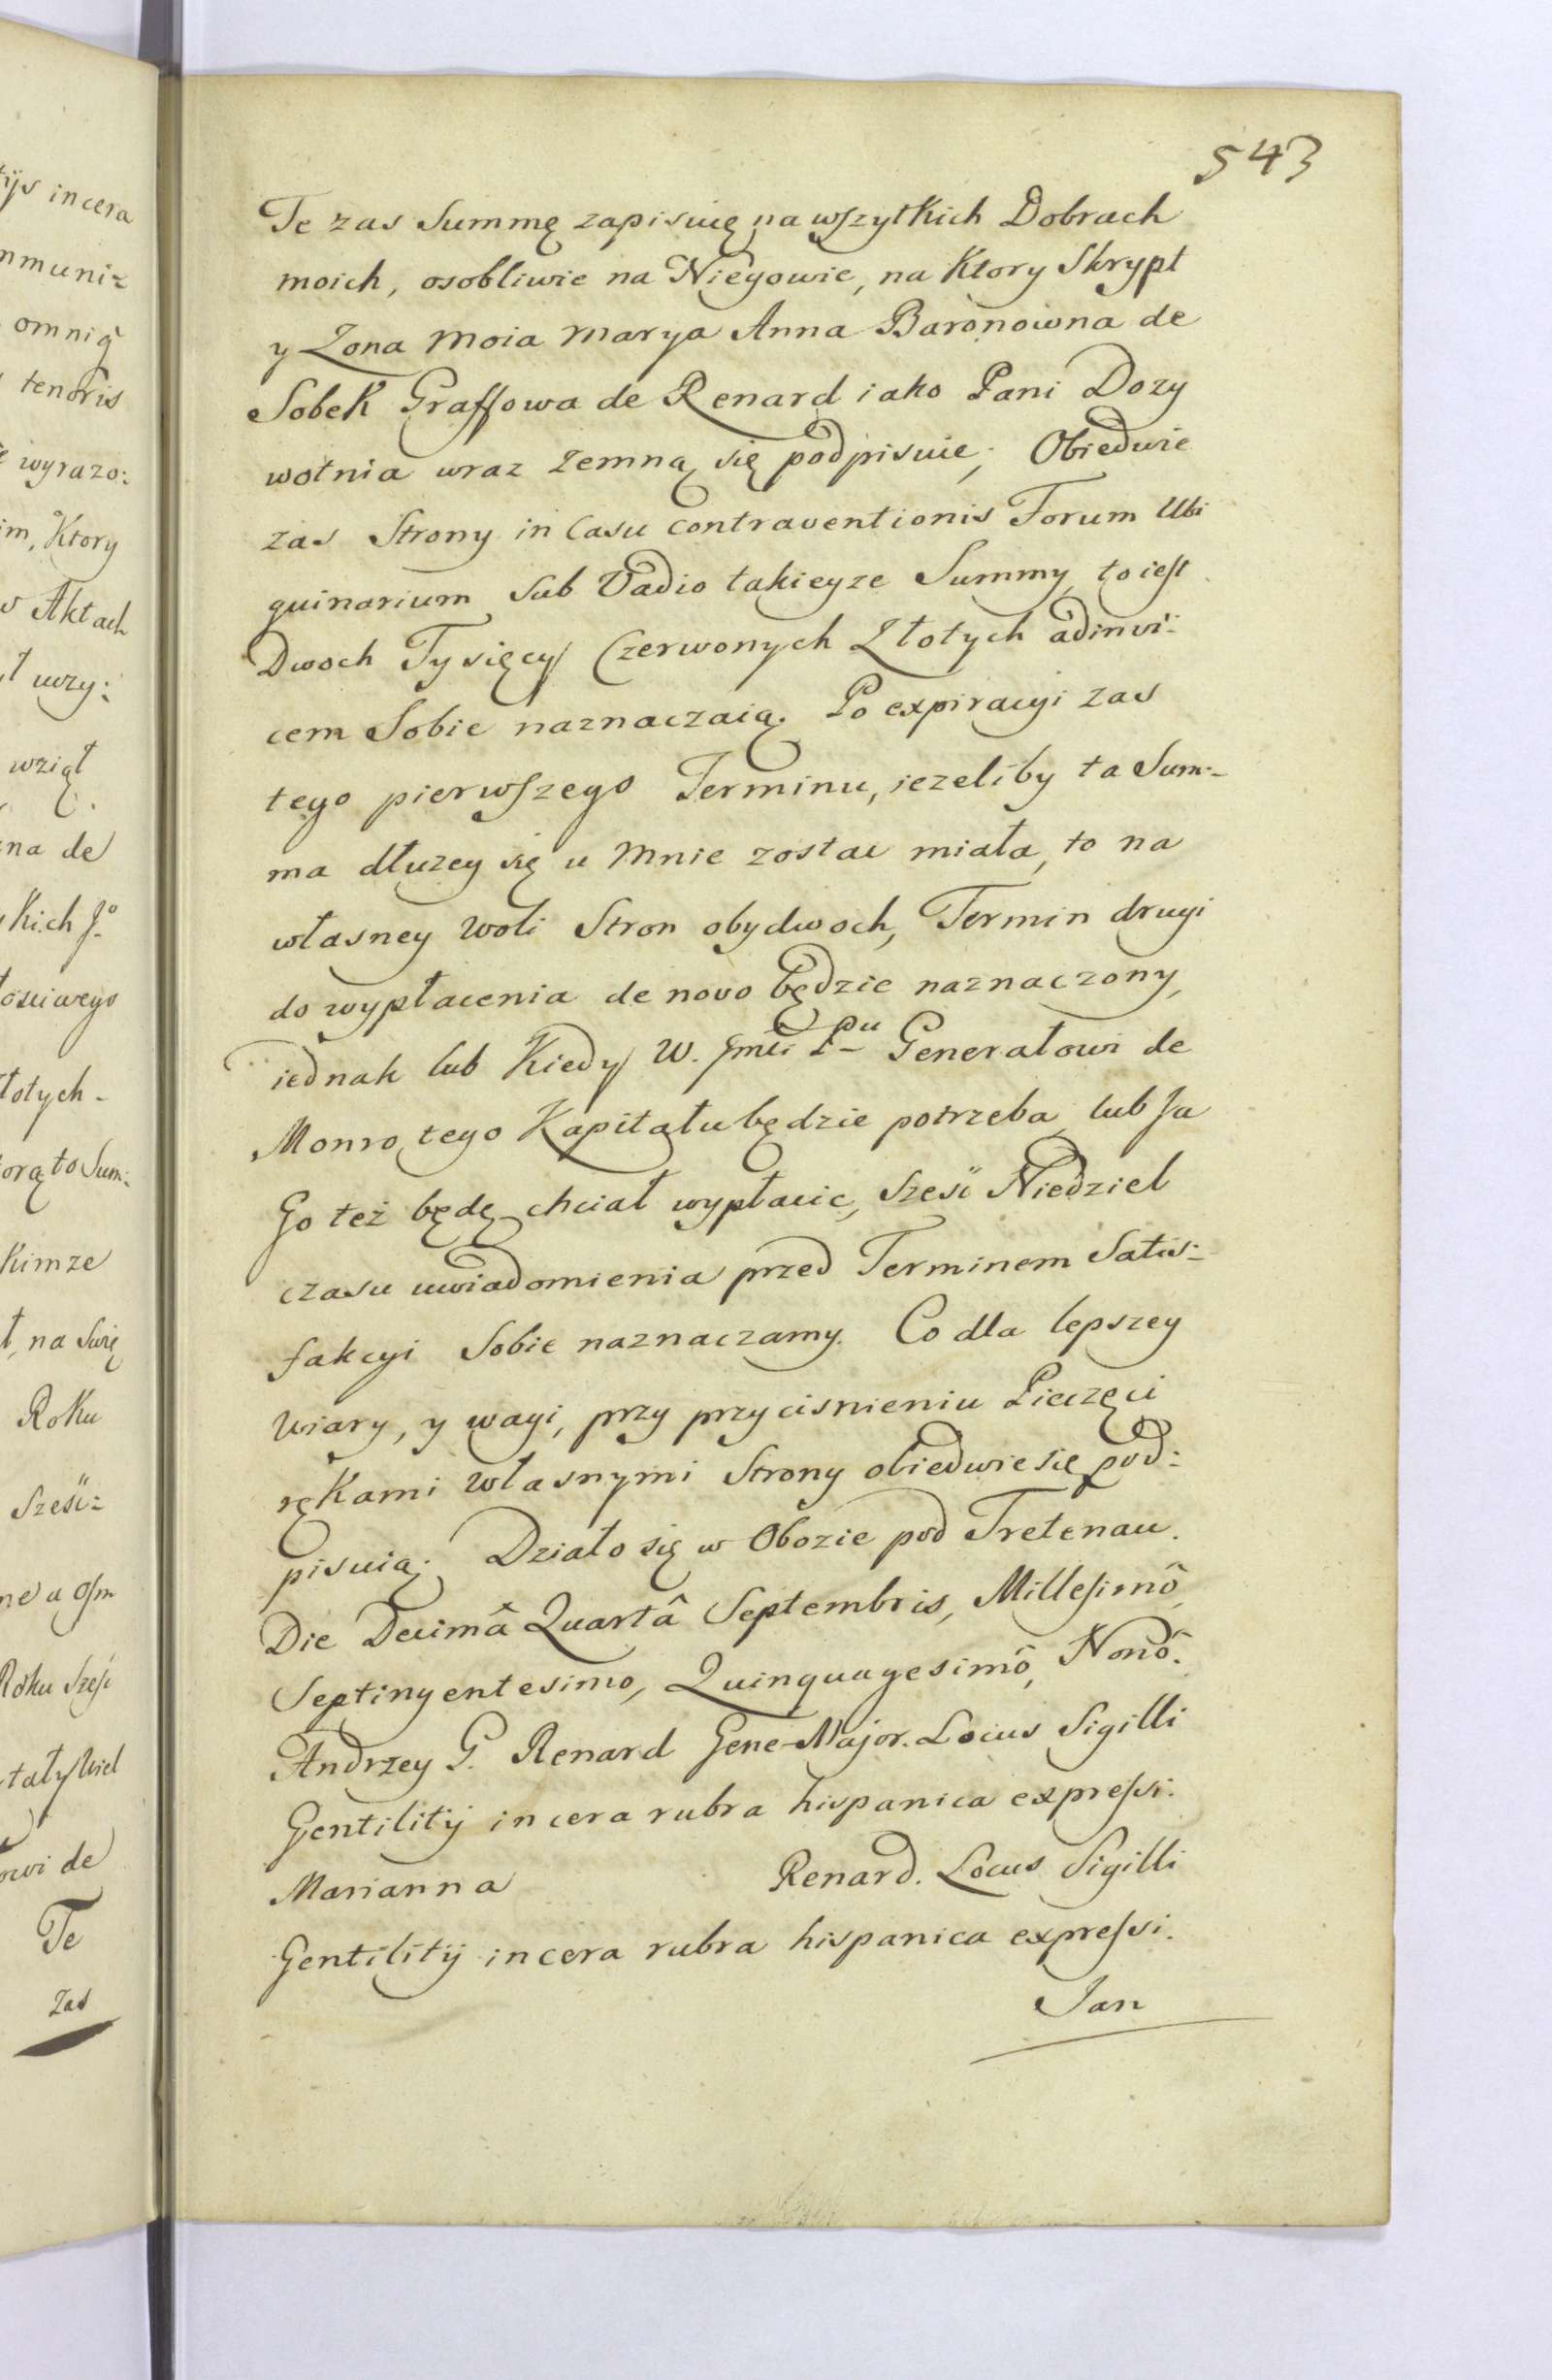 543
Te zas Summę zapisuię na wszytkich Dobrach
moich, osobliwie na Niegowie, na Ktory Skrypt
y Zona Moia Marya Anna Baronowna de
Sobek Graffowa de Renard iako Pani Dozy
wotnia wraz zemną się podpisuie; Obiedwie
zas Strony in Casu contraventionis Forum Ubi
quinarium sub Vadio takieyze Summy, to iest
Dwoch Tysięcy Czerwonych Złotych adinvi-
cem Sobie naznaczaią. Po expiracyi zas
tego pierwszego Terminu, iezeliby ta Sum-
ma dłuzey się u Mnie zostac miała, to na
własney Woli Stron obydwoch, Termin drugi
do wypłacenia de novo będzie naznaczony,
iednak lub Kiedy W. Jmci Pu Generałowi de
Monro tego Kapitału będzie potrzeba, lub Ja
Go też będę chciał wypłacic, Szesc Niedziel
czasu uwiadomienia przed Terminem Satis-
fakcyi Sobie naznaczamy. Co dla lepszey
Wiary, y wagi, przy przycisnieniu Pieczęci
rękami własnymi Strony obiedwie się pod:
pisuią. Działo się w Obozie pod Tretenau.
Die Decimâ Quartâ Septembris, Millesimô,
Septingentesimo, Quinquagesimô, Nonô.
Andrzey G. Renard Gene-Major. Locus Sigilli
Gentilitij in cera rubra hispanica expressi.
Marianna Renard. Locus Sigilli
Gentilitij in cera rubra hispanica expressi.
Jan
tijs in cera
mmuni-
omnia
tenoris
wyrazo:
im, Ktory
Aktach
uzy:
wziął
na de
kich Jo
łotych-
orą to Sum:
kimze
na Swię
Roku
Szesc-
ne a osm
Roku Szesc
owi de
Te
zas